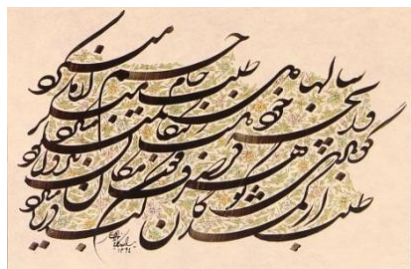 سالها دل طلب جام جم از ما میکرد
وآنچه خود داشت ز بیگانه تمنا میکرد
گوهری کز صدف کون و مکان بیرون
طلب از گمشدگان لب دریا میکرد